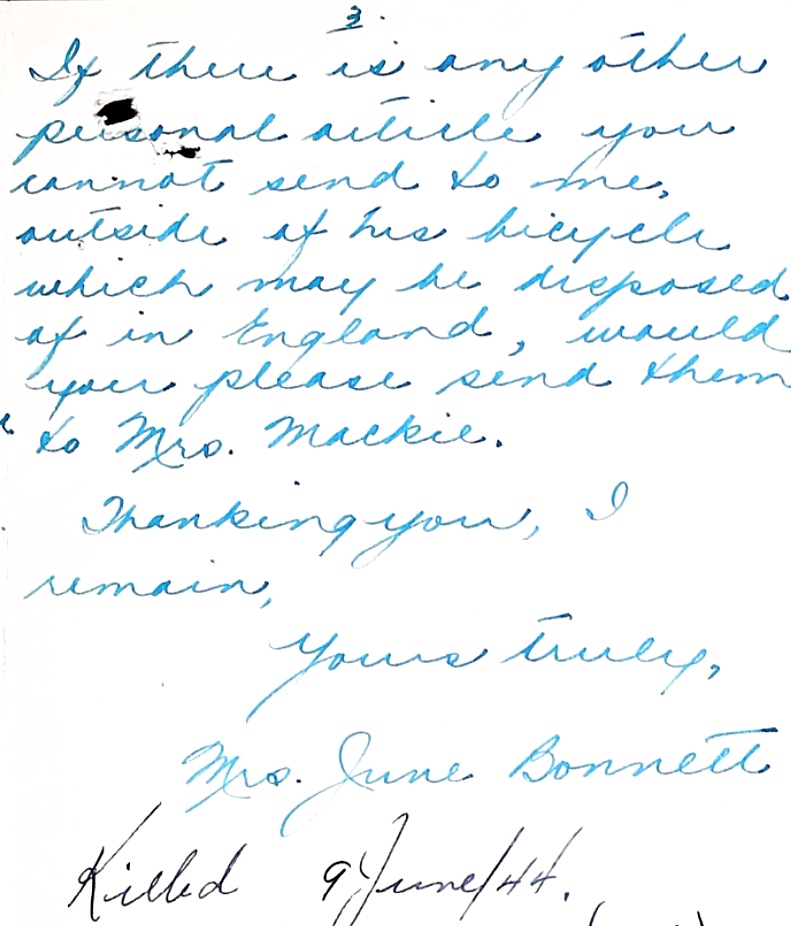 3.
If there is any other
personal article you
cannot send to me,
outside of his bicycle
which may be disposed
of in England, would
you please send them
to Mrs. Mackie.
Thanking you, I
remain,
Yours truly,
Mrs. June Bonnett
Killed 9 June/44.